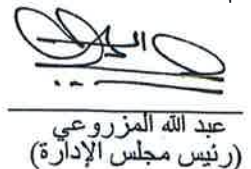 عبد الله المزروعي
(رئيس مجلس الإدارة)